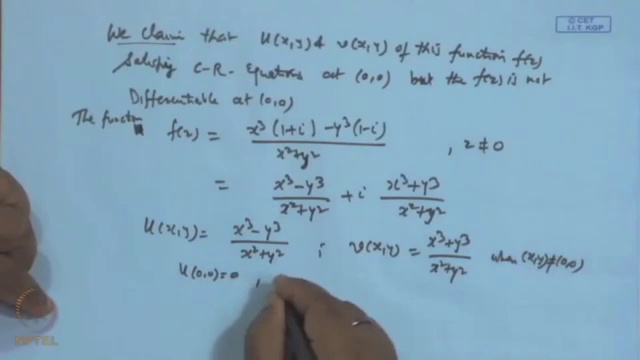 © CET
I.I.T. KGP
We claim that u(x,y) & v(x,y) of this function f(z)
Satisfying C-R- Equations at (0,0) but the f(z) is not
Differentiable at (0,0)
The functn f(z) = x³(1+i) - y³(1-i) / x²+y² , z ≠ 0
= x³-y³ / x²+y² + i x³+y³ / x²+y²
u(x,y) = x³-y³ / x²+y² ; v(x,y) = x³+y³ / x²+y² when (x,y)≠(0,0)
u(0,0)=0 ,
NPTEL